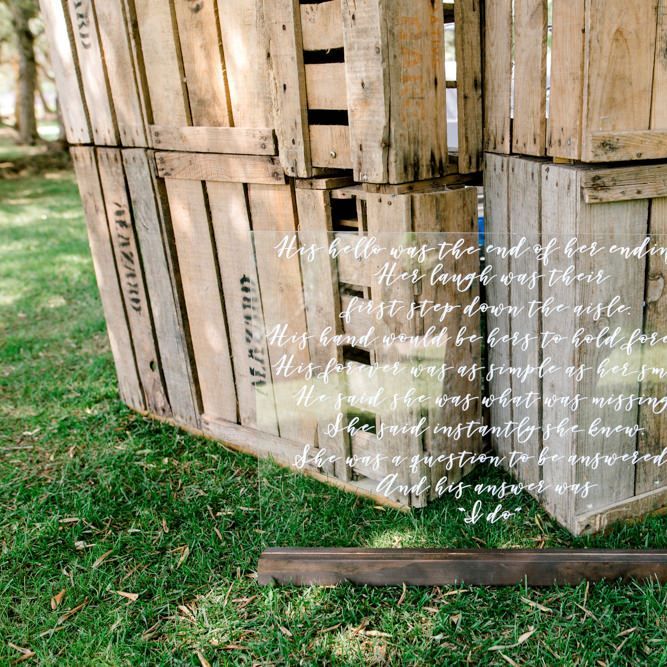 ALAZARD
ALAZARD
His hello was the end of her endin
Her laugh was their
first step down the aisle.
His hand would be hers to hold fore
His forever was as simple as her sm
He said she was what was missing
She said instantly she knew.
She was a question to be answered
And his answer was
"I do"